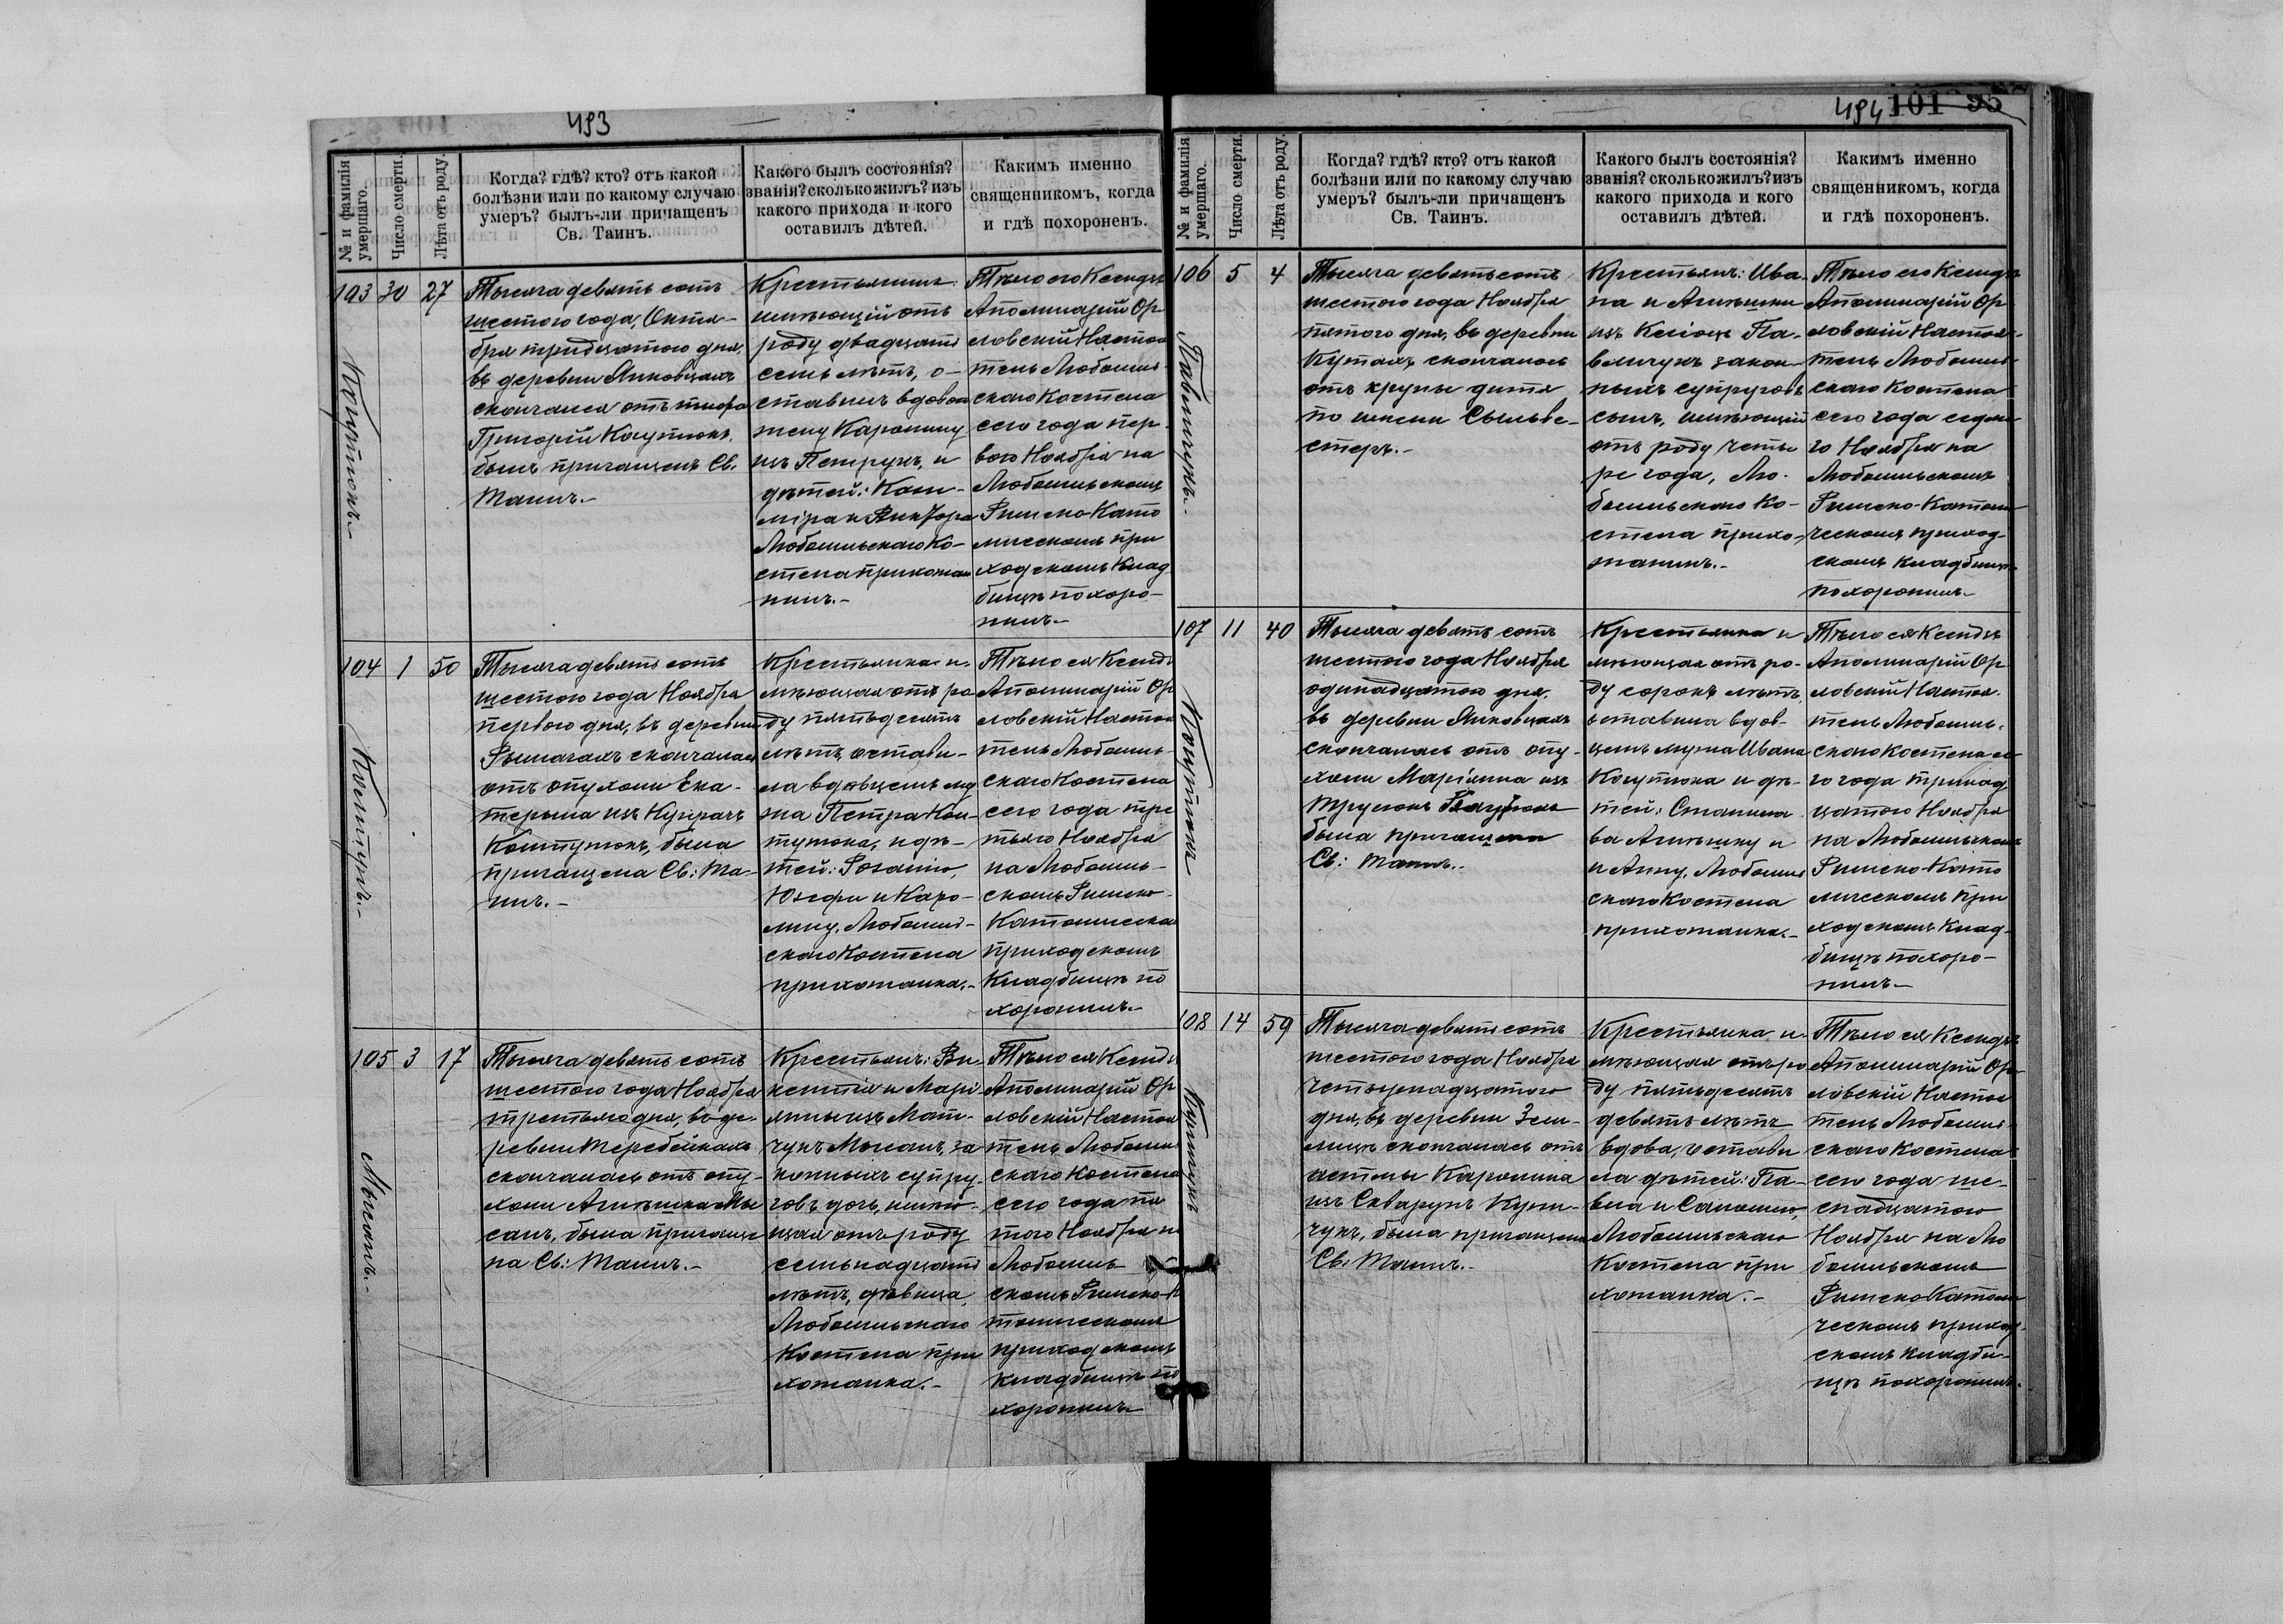 493
№ и фамилія умершаго.
Число смерти.
Лѣта отъ роду.
Когда? гдѣ? кто? отъ какой
болѣзни или по какому случаю
умеръ? былъ-ли причащенъ
Св. Таинъ.
Какого былъ состоянія?
званія? сколько жилъ? изъ
какого прихода и кого
оставилъ дѣтей.
Какимъ именно
священникомъ, когда
и гдѣ похороненъ.
103 30 27
Тысяча девять сотъ
шестого года, Октя-
бря тридцатого дня,
въ деревни Янковцахъ
скончался отъ тифа
Григорій
былъ причащенъ Св.
Таинъ.-
Крестьянинъ
имѣющій отъ
роду двадцать
семь лѣтъ, о-
ставилъ вдовою
жену Каролину
изъ Петрукъ, и
дѣтей: Кази-
міра и Виктора
Любашыскаго Ко-
стела прихожа
нинъ.-
Тѣло его Ксендзъ
Аполинарій Ор
ловскій Настоя
тель
скаго Костела
сего года пер-
вого Ноября на
Римско-Като
лическомъ при
ходскомъ Клад
бищѣ похоро-
нилъ.-
104 1 50
Тысяча девять сотъ
шестого года Ноября
первого дня, въ деревни
скончалась
отъ опухоли Ека-
терина изъ
была
причащена Св: Та-
инъ.-
Крестьянка и-
мѣющая отъ ро
ду пятьдесятъ
лѣтъ, остави-
ла вдовцемъ му
жа Петра
и дѣ-
тей: Розалію,
Юзефу и Каро-
лину,
скаго Костела
прихожанка.-
Тѣло ея Ксендзъ
Аполинарій Ор
ловскій Настоя
тель
скаго Костела
сего года тре
тьяго Ноября
на
скомъ Римско-
Католическомъ
приходскомъ
Кладбищѣ по
хоронилъ.-
105 3 17
Тысяча девять сотъ
шестого года Ноября
третьяго дня, въ де-
ревни Теребейкахъ
скончалась отъ опу-
холи Агнѣшка Мы
санъ, была причаще
на Св: Таинъ.-
Мысанъ.-
Крестьянъ: Ви-
кентія и Марі
янны изъ Мат-
чукъ Мысанъ, за
конныхъ супру-
говъ дочь, имѣю-
щая отъ роду
семьнадцать
лѣтъ, дѣвица,
Костела при
хожанка.-
Тѣло ея Ксендзъ
Аполинарій Ор
ловскій Настоя
тель
скаго Костела
сего года пя
того Ноября на
скомъ Римско-К
толическомъ
приходскомъ
кладбищѣ по
хоронилъ
494 101 95
№ и фамилія умершаго.
Число смерти.
Лѣта отъ роду.
Когда? гдѣ? кто? отъ какой
болѣзни или по какому случаю
умеръ? былъ-ли причащенъ
Св. Таинъ.
Какого былъ состоянія?
званія? сколько жилъ? изъ
какого прихода и кого
оставилъ дѣтей.
Какимъ именно
священникомъ, когда
и гдѣ похороненъ.
106 5 4
Павличукъ.-
Тысяча девятьсотъ
шестого года Ноября
пятого дня, въ деревни
Кутахъ скончалось
отъ крупы дитя
по имени Сыльве-
стеръ.-
Крестьянъ: Ива-
на и Агнѣшки
изъ Па-
вличукъ закон-
ныхъ супруговъ
сынъ, имѣющій
отъ роду четы
ре года,
Ко-
стела прихо-
жанинъ.-
Тѣло его Ксендзъ
Аполинарій Ор
ловскій Настоя-
тель
скаго Костела
сего года седьмо
го Ноября на
Римско-Католи
ческомъ приход-
скомъ кладбищѣ
похоронилъ.-
107 11 40
Тысяча девять сотъ
шестого года Ноября
одинадцатого дня,
въ деревни Янковцахъ
скончалась отъ опу-
холи Маріянна изъ
была причащена
Св: Таинъ.-
Крестьянка и
мѣющая отъ ро-
ду сорокъ лѣтъ,
оставила вдов-
цемъ мужа Ивана
и дѣ-
тей: Станисла
ва Агнѣшку и
и Анну,
скаго Костела
прихожанка.-
Тѣло ея Ксендзъ
Аполинарій Ор
ловскій Настоя-
тель
скаго Костела се
го года тринад
цатого Ноября
на
Римско-Като
лическомъ при
ходскомъ Клад-
бищѣ похоро-
нилъ.-
108 14 59
Тысяча девять сотъ
шестого года Ноября
четырнадцатого
дня, въ деревни
скончалась отъ
астмы Каролина
изъ
была причащена
Св: Таинъ.-
Крестьянка и-
мѣющая отъ ро
ду пятьдесятъ
девять лѣтъ
вдова, остави
ла дѣтей: Па-
вла и
Костела при
хожанка.-
Тѣло ея Ксендзъ
Аполинарій Ор
ловскій Настоя
тель
скаго Костела
сего года ше-
снадцатого
Ноября на
Римско Католи
ческомъ приход-
скомъ кладби-
щѣ похоронилъ.